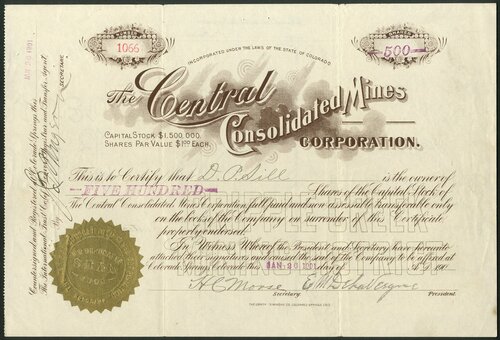 1066
500
INCORPORATED UNDER THE LAWS OF THE STATE OF COLORADO.
The Central
Consolidated Mines
CORPORATION.
CAPITAL STOCK $1,500,000.
SHARES PAR VALUE $1.00 EACH.
This is to Certify that D. P. Sill is the owner of
FIVE HUNDRED Shares of the Capital Stock of
The Central Consolidated Mines Corporation, full paid and non assessable transferable only
on the books of the Company on surrender of this Certificate
properly endorsed.
In Witness Whereof the President and Secretary have hereunto
attached their signatures and caused the seal of the Company to be affixed at
Colorado Springs, Colorado this JAN 20 1901 day of A.D. 190
H C Morse
Secretary
President
Countersigned and Registered at Colorado Springs this
The International Trust Company, Registrar and Transfer Agent.
By
SECRETARY